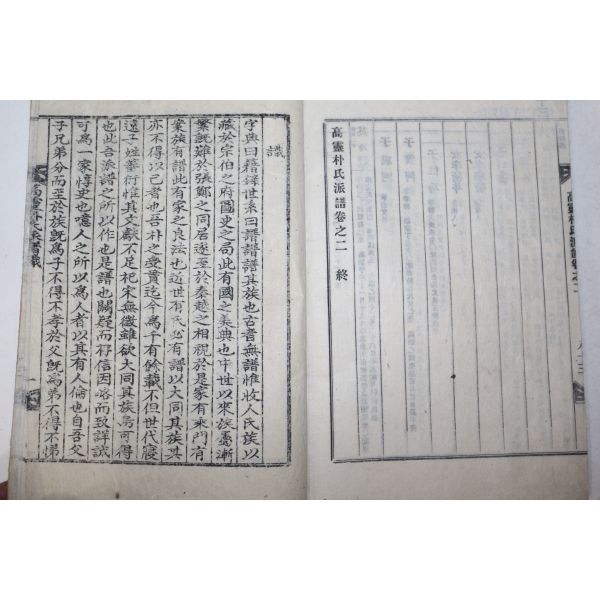 高靈朴氏派譜卷之二 終
高靈朴氏派譜卷之二
識
字典曰籍錄世系曰譜譜其族也古者無譜惟收人民族以
藏於宗伯之府國史之局此有國之美典也中世以來族蕃漸
繁旣難於張鄭之同居遂至於秦越之相視於是家有乘門有
案族有譜此有家之良法也近世有氏必有譜以大同其族其
亦不得以已者也吾朴之受貫迄今爲千有餘載不但世代寢
遠子姓蕃衍惟其文獻不足杞宋無徵雖欲大同其族烏可得
也此吾派譜之所以作也是譜也闕疑而存信因略而致詳誠
可爲一家惇史也噫人之所以爲人者以其有人倫也自吾父
子兄弟分而至於族旣爲子不得不孝於父旣爲弟不得不悌
高靈朴氏派譜識